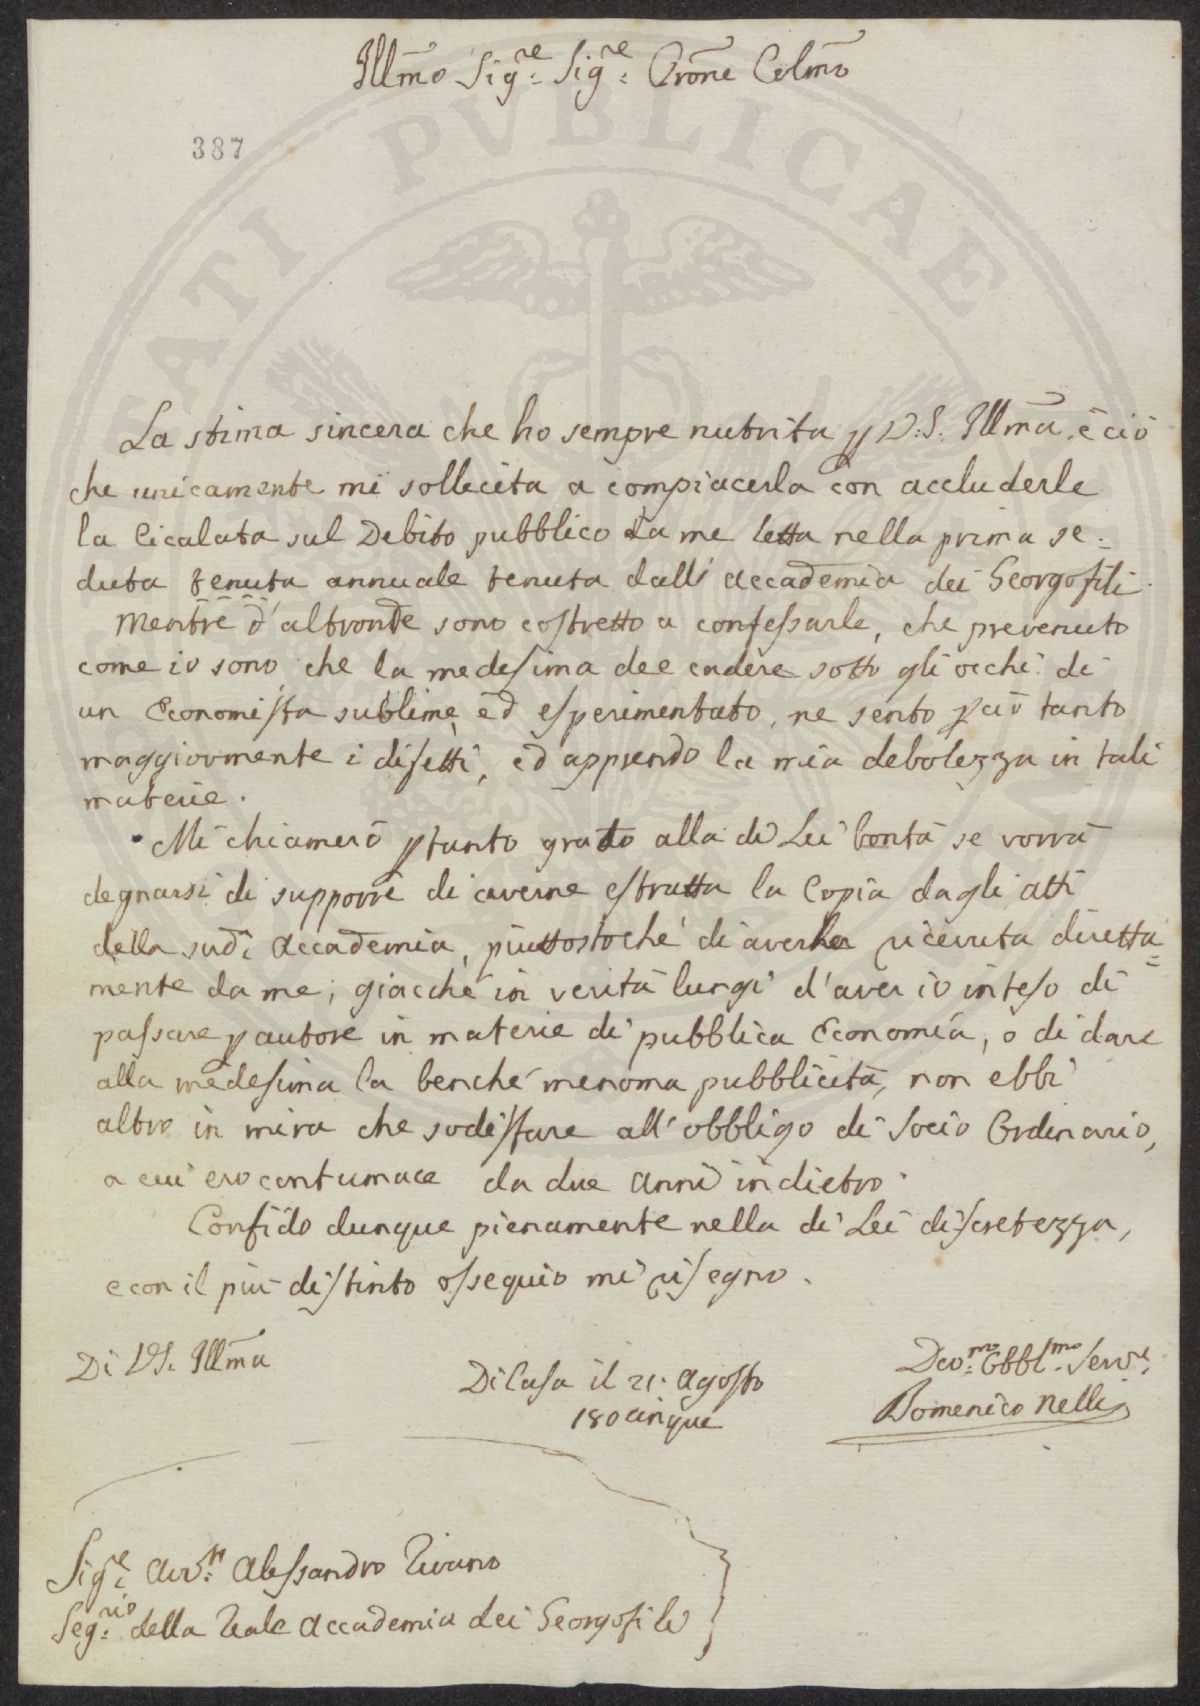 Illm̃o Sig.re Sig.re Prõne Colm̃o
387
La stima sincera che ho sempre nutrita p V.S. Illm̃a, è ciò
che unicamente mi sollecita a compiacerla con accluderle
la Cicalata sul Debito pubblico da me letta nella prima se=
duta tenuta annuale tenuta dall' Accademia dei Georgofili.
Mentre d'altronde sono costretto a confessarle, che prevenuto
come io sono, che la medesima dee cadere sotto gli occhi di
un Economista sublime, ed esperimentato, ne sento p ciò tanto
maggiormente i difetti, ed apprendo la mia debolezza in tali
materie.
Mi chiamerò p tanto grato alla di Lei bontà se vorrà
degnarsi di supporre di averne estratta la Copia dagli atti
della sud.a Accademia, piuttostoché di averla ricevuta diretta=
mente da me; giacché in verità lungi d'aver io inteso di
passare p autore in materie di pubblica Economia, o di dare
alla medesima la benché menoma pubblicità, non ebbi
altro in mira che sodisfare all'obbligo di Socio Ordinario,
a cui ero contumace da due Anni indietro.
Confido dunque pienamente nella di Lei discretezza,
e con il più distinto ossequio mi risegno.
Di VS. Illm̃a
Di Casa il 21. Agosto
180cinque
Dev.mo Obbl.mo Serv.e
Domenico Nelli
Sig.re Avv. Alessandro Rivani
Seg.rio della Reale Accademia dei Georgofili
PUBLICAE